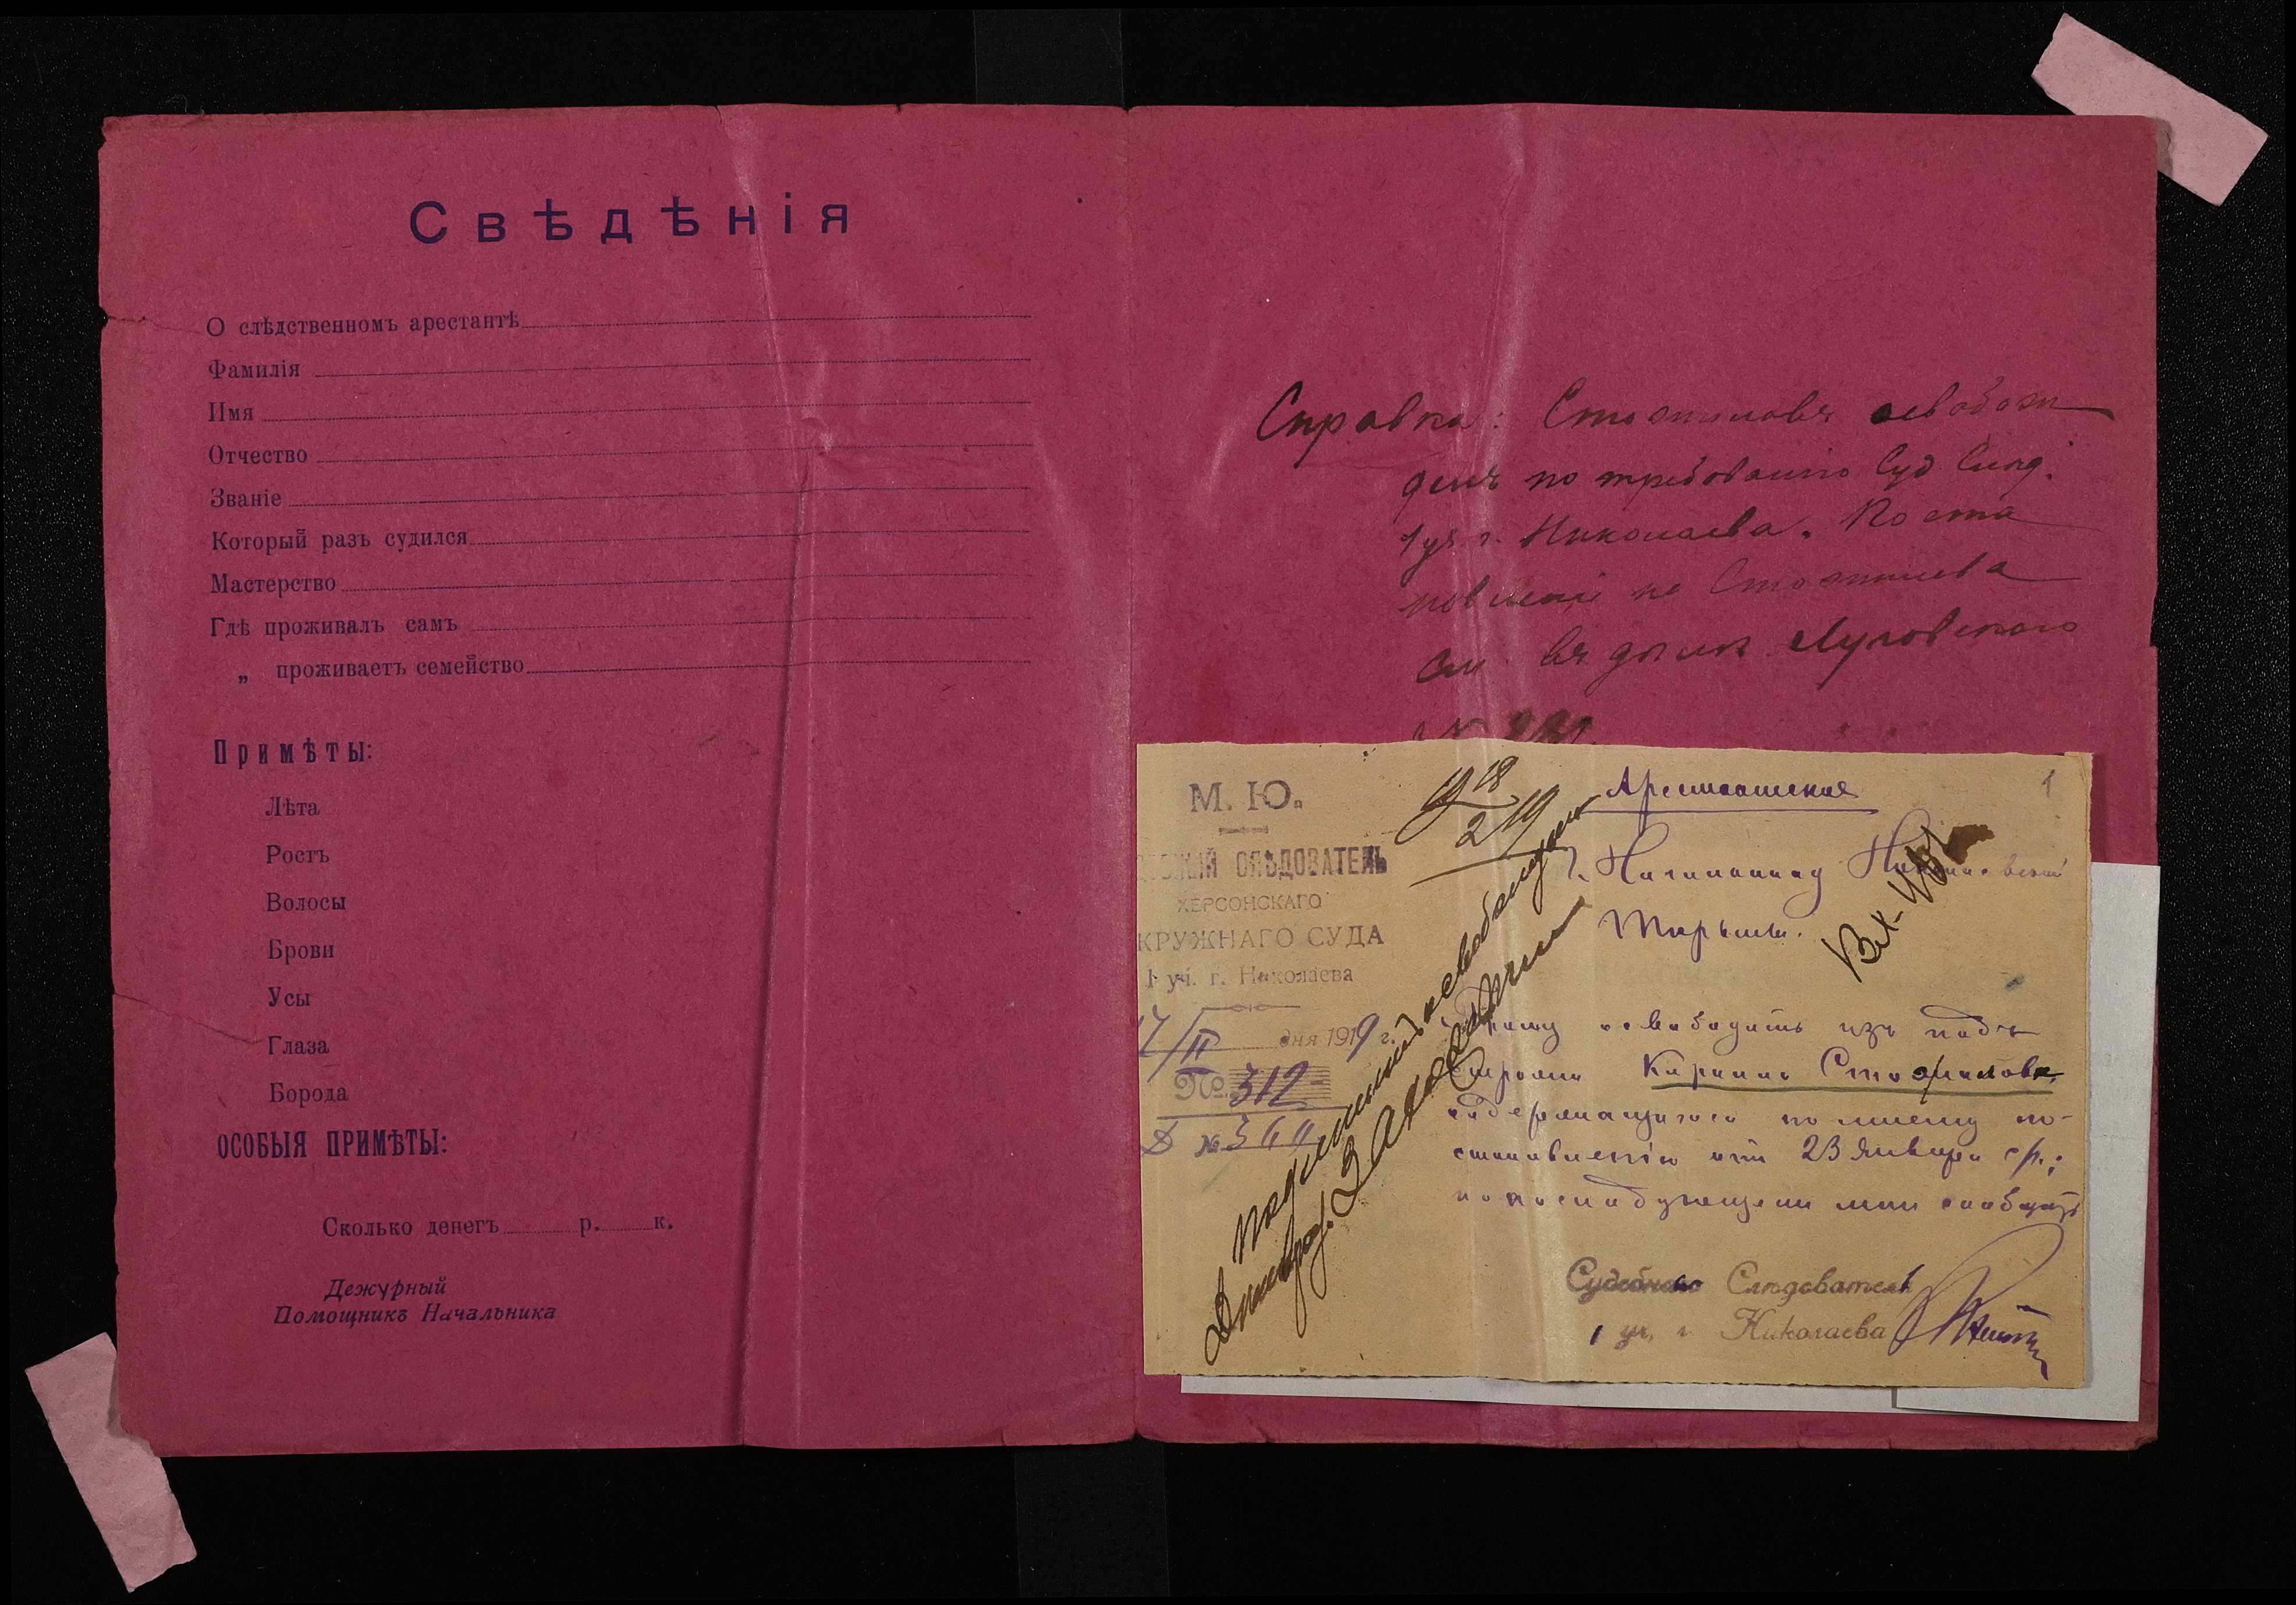 Свѣдѣнія
О слѣдственномъ арестантѣ
Фамилія
Имя
Отчество
Званіе
Который разъ судился
Мастерство
Гдѣ проживалъ самъ
„ проживаетъ семейство
Примѣты:
Лѣта
Ростъ
Волосы
Брови
Усы
Глаза
Борода
ОСОБЫЯ ПРИМѢТЫ:
Сколько денегъ р. к.
Дежурный
Помощникъ Начальника
Справка: освобож
денъ по требованію Суд Слѣд.
1 уч. г. Николаева. Поста
новленіе
см. въ дѣлѣ
М. Ю.
СЛѢДОВАТЕЛЬ
ХЕРСОНСКАГО
КРУЖНАГО СУДА
1 уч. г. Николаева
17/II дня 1919 г.
№ 312
18/2 19
Арестантское
1
Г. Начальнику Николаевской
Тюрьмы.
Прошу освободить изъ подъ
стражи
содержащагося по моему по-
становленію отъ 23 Января с/г.;
о послѣдующемъ мнѣ сообщить
Судебный Слѣдователь
1 уч. г. Николаева